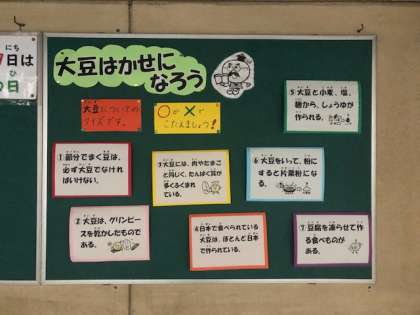 にち
日は
ひ
の日
大豆はかせに
なろう
大豆についての
クイズです。
○か×で
こたえましょう!
①節分でまく豆は、
必ず大豆でなけれ
ばいけない。
②大豆は、グリンピー
スを乾かしたもので
ある。
③大豆には、肉やたまご
と同じく、たんぱく質が
多くふくまれ
ている。
④日本で食べられている
大豆は、ほとんど日本
で作られている。
⑤大豆と小麦、塩、
麹から、しょうゆが
作られる。
⑥大豆をいって、粉に
すると片栗粉にな
る。
⑦豆腐を凍らせて作
る食べものが
ある。